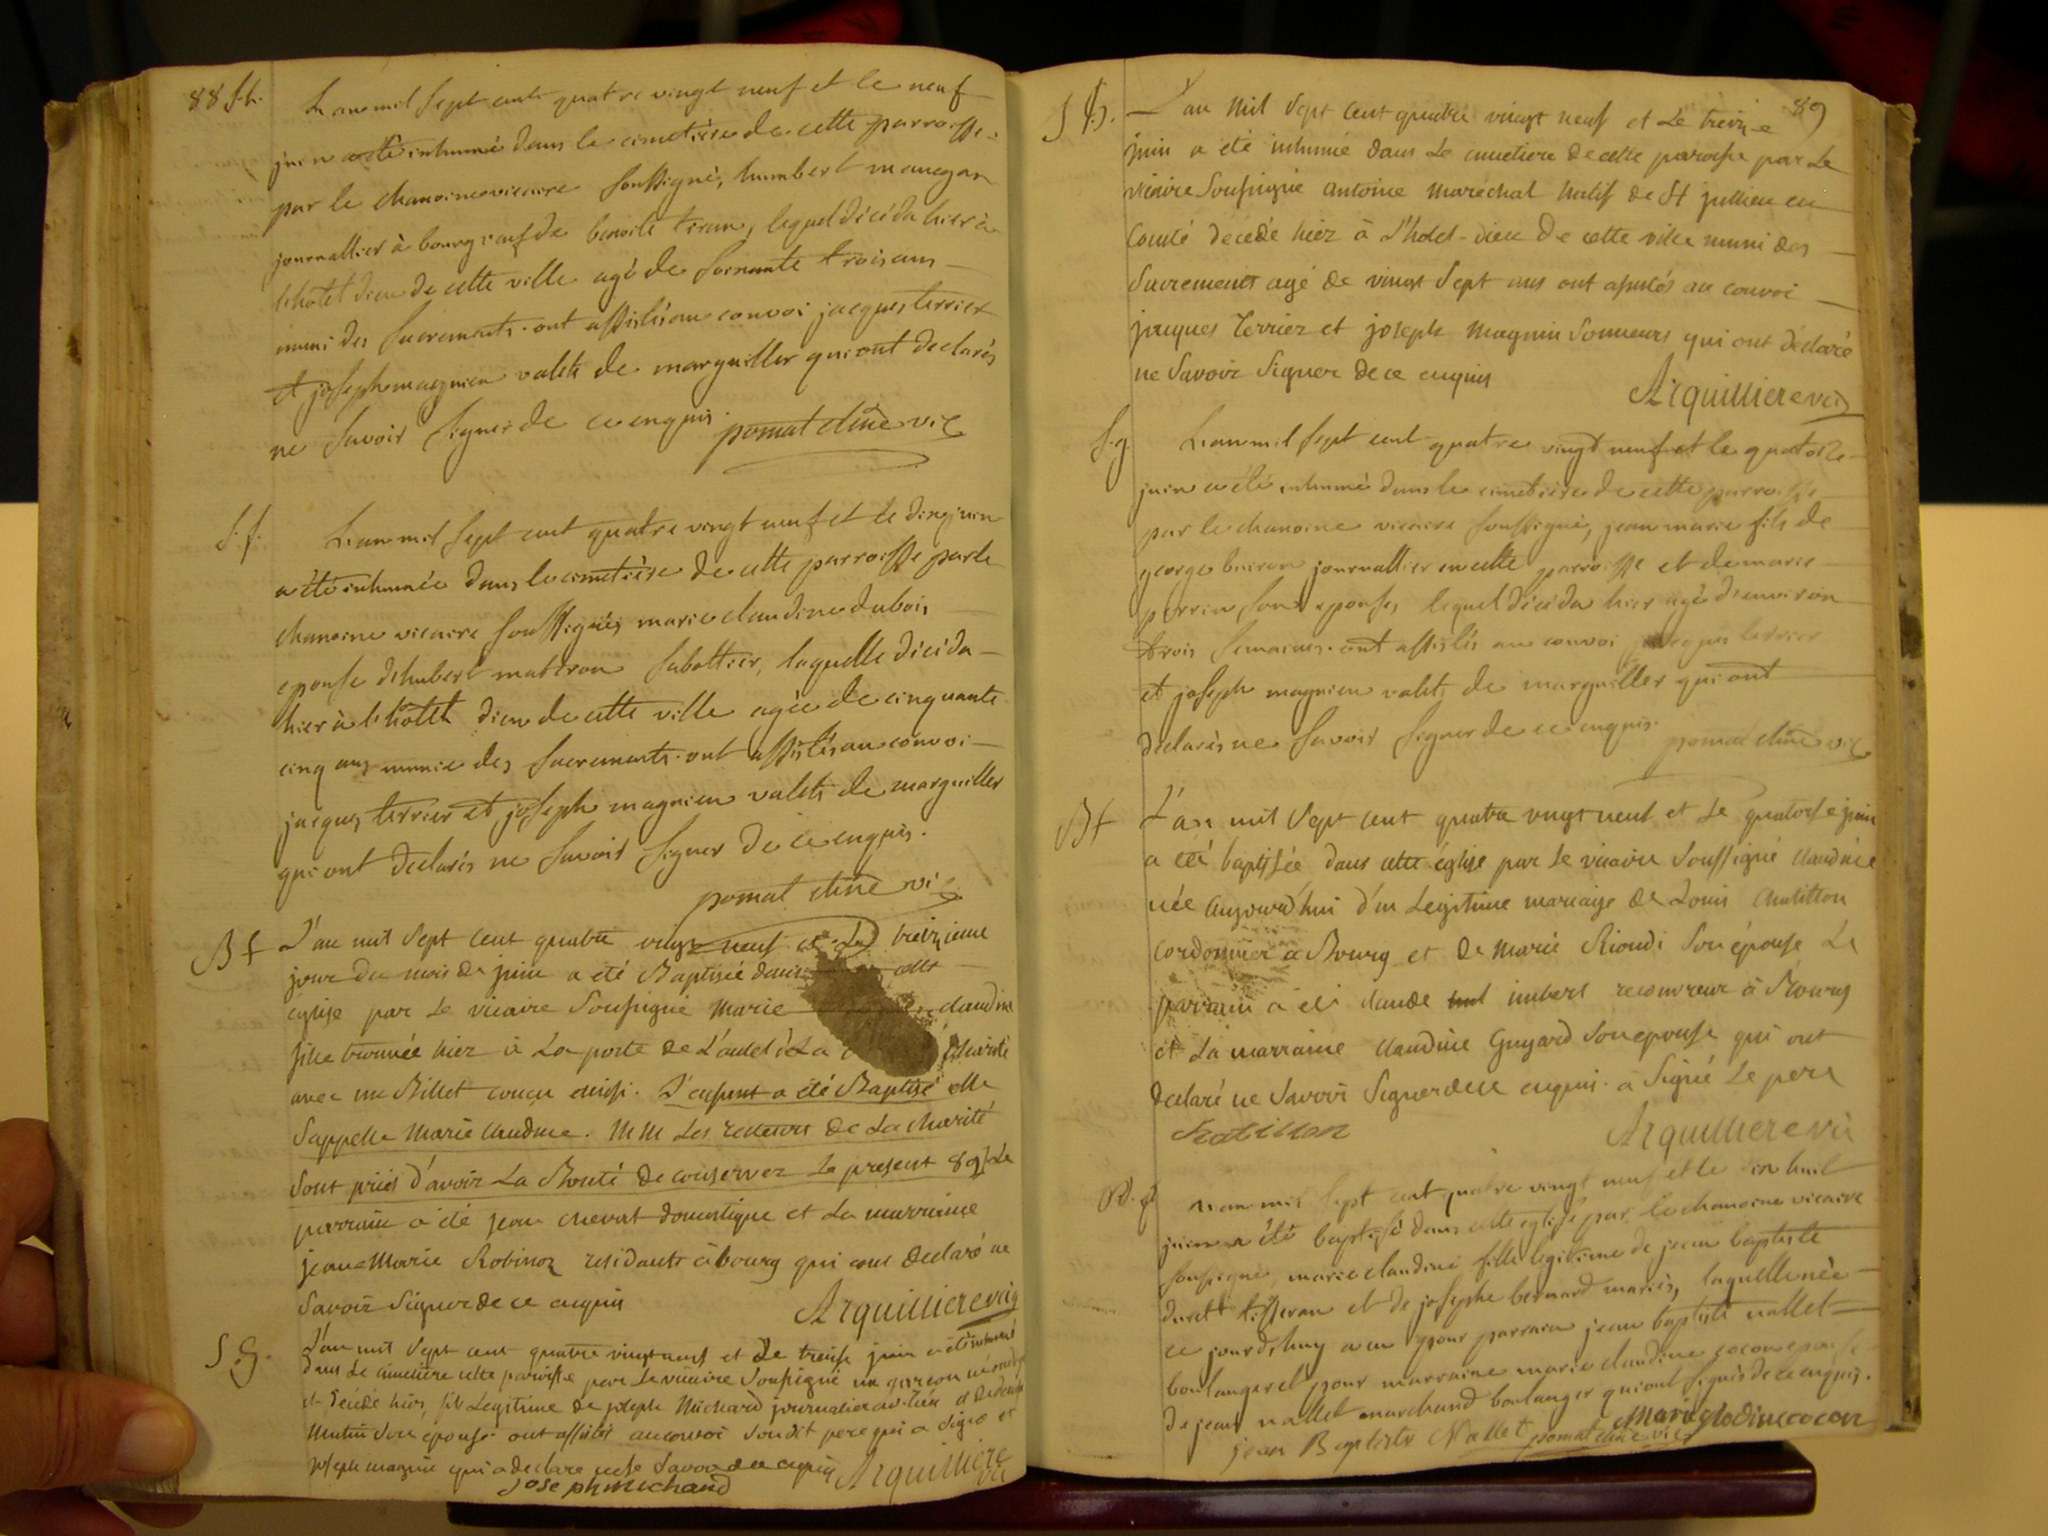 88 S.h. L'an mil sept cent quatre vingt neuf et le neuf
juin a été inhumé dans le cimetière de cette parroisse
par le chanoine vicaire soussigné, humbert
journallier à bourg veuf de benoite tiran, lequel décéda hier à
l'hôtel dieu de cette ville agé de soixante trois ans
muni des sacrements. ont assistés au convoi jacques terrier
et joseph magnien valets de marguiller qui ont declarés
ne savoir signer de ce enquis. pomat chne vic
S.f. L'an mil sept cent quatre vingt neuf et le dix juin
a été inhumée dans le cimetière de cette parroisse par le
chanoine vicaire soussigné, marie claudine dubois
epouse d'hubert sabottier, laquelle décéda
hier à l'hôtel dieu de cette ville agée de cinquante
cinq ans munie des sacrements. ont assistés au convoi
jacques terrier et joseph magnien valets de marguiller
qui ont declarés ne savoir signer de ce enquis.
pomat chne vic
B f L'an mil sept cent quatre vingt neuf et le treizieme
jour du mois de juin a été Baptisée dans cette
église par le vicaire soussigné marie claudine
fille trouvée hier à la porte de l'autel de la charité
avec un Billet conçu ainsi. L'enfant a été Baptisé elle
s'appelle marie claudine. MM les recteurs de la charité
sont priés d'avoir la Bonté de conserver le present 89 Le
parrain a été jean chevat domestique et la marraine
jeane Marie Robinoz residants à bourg qui ont declaré ne
savoir signer de ce enquis Arquilliere vic
S.G. L'an mil sept cent quatre vingt neuf et Le treise juin a été inhumé
dans le cimetiere cette paroisse par le vicaire soussigné un garcon né ondoyé
et décédé hier, fils Legitime de joseph Michard journalier au et de
son epouse ont assistés au convoi son dit pere qui a signé et
joseph magnin qui a declaré ne le savoir de ce enquis Arquilliere
vic
joseph michaud
89
S G. L'an mil sept cent quatre vingt neuf et Le treize
juin a été inhumé dans Le cimetiere de cette paroisse par Le
vicaire soussigné antoine maréchal natif de St jullien en
Comté décédé hier à l'hotel-dieu de cette ville muni des
sacrements agé de vingt sept ans ont assistés au convoi
jacques terrier et joseph magnin sonneurs qui ont déclaré
ne savoir signer de ce enquis
Arquilliere vic
S.g. L'an mil sept cent quatre vingt neuf et le quatorze
juin a été inhumé dans le cimetiere de cette parroisse
par le chanoine vicaire soussigné, jean marie fils de
george journallier en cette parroisse et de marie
perrin son epouse, lequel décéda hier agé d'environ
trois semaines. ont assistés au convoi jacques terrier
et joseph magnien valets de marguiller qui ont
declarés ne savoir signer de ce enquis.
pomat chne vic
B f L'an mil sept cent quatre vingt neuf et Le quatorse juin
a été baptisée dans cette église par le vicaire soussigné claudine
née aujourd'hui d'un Legitime mariage de Louis Chatillon
cordonnier à Bourg et de Marie Rioudi son épouse Le
parrain a été claude imbert recouvreur à Bourg
et la marraine claudine Guyard son epouse qui ont
declaré ne savoir signer de ce enquis. a signé le pere
Chatillon Arquilliere vic
B. f L'an mil sept cent quatre vingt neuf et le dix huit
juin a été baptisé dans cette église par le chanoine vicaire
soussigné, marie claudine fille légitime de jean baptiste
duret tisseran et de josephe bernard mariés, laquelle née
ce jourd'huy a eu pour parrain jean baptiste nallet
boulanger et pour marraine marie claudine cocon epouse
de jean nallet marchand boulanger qui ont signés de ce enquis.
Marie clodine cocon
jean Baptiste Nallet pomat chne vic